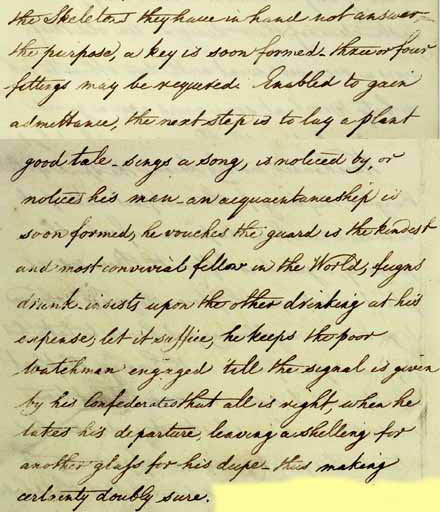 the Skeleton they have in hand not answer
the purpose, a key is soon formed - three or four
fittings may be required. Enabled to gain
admittance, the next step is to lay a plant
good tale - sings a song, is noticed by, or
notices his man - an acquaintanceship is
soon formed, he vouches the guard is the kindest
and most convivial fellow in the World, feigns
drunk - insists upon the other drinking at his
expense, let it suffice, he keeps the poor
Watchman engaged 'till the signal is given
by his Confederates that all is right, when he
takes his departure, leaving a shelling for
another glass for his dupe - this making
certainty doubly sure.